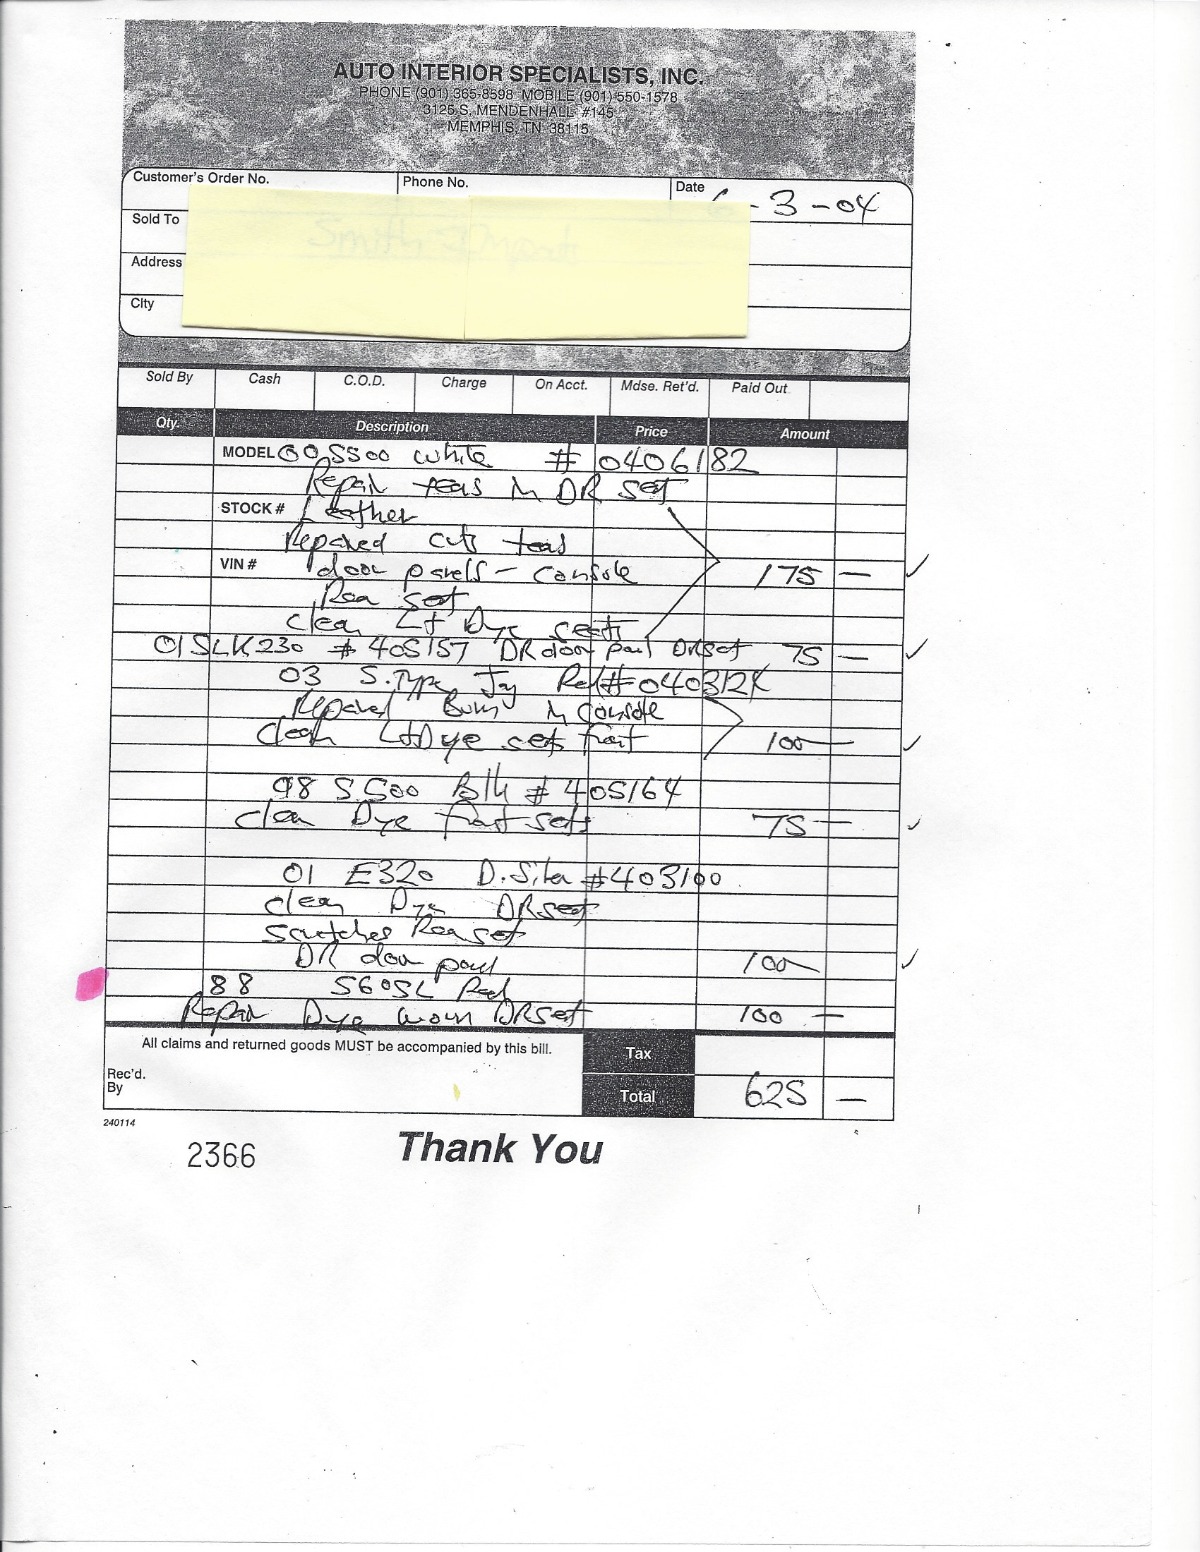 AUTO INTERIOR SPECIALISTS, INC.
PHONE (901) 365-8598 MOBILE (901) 550-1578
3125 S. MENDENHALL #145
MEMPHIS, TN 38115
Customer's Order No. Phone No. Date 6-3-04
Sold To
Address
City
Sold By Cash C.O.D. Charge On Acct. Mdse. Ret'd. Paid Out
Qty. Description Price Amount
MODEL 00 S500 White # 0406182
Repair DR
STOCK # Leather
Repaired cuts
VIN # door panels - Console 175 —
clean Lt Dye seats
01 SLK230 # 405157 DR door 75 —
03 S.Type Jag Red # 040312
Repaired Burn in Console
Clean Lt Dye front 100 —
98 S500 Blk # 405164
Clean Dye front 75 —
01 E320 D. # 403100
clean Dye DR
DR door 100
88 560SL Red
Repair Dye worn DR 100 —
All claims and returned goods MUST be accompanied by this bill. Tax
Rec'd. By
Total 625 —
240114
2366 Thank You